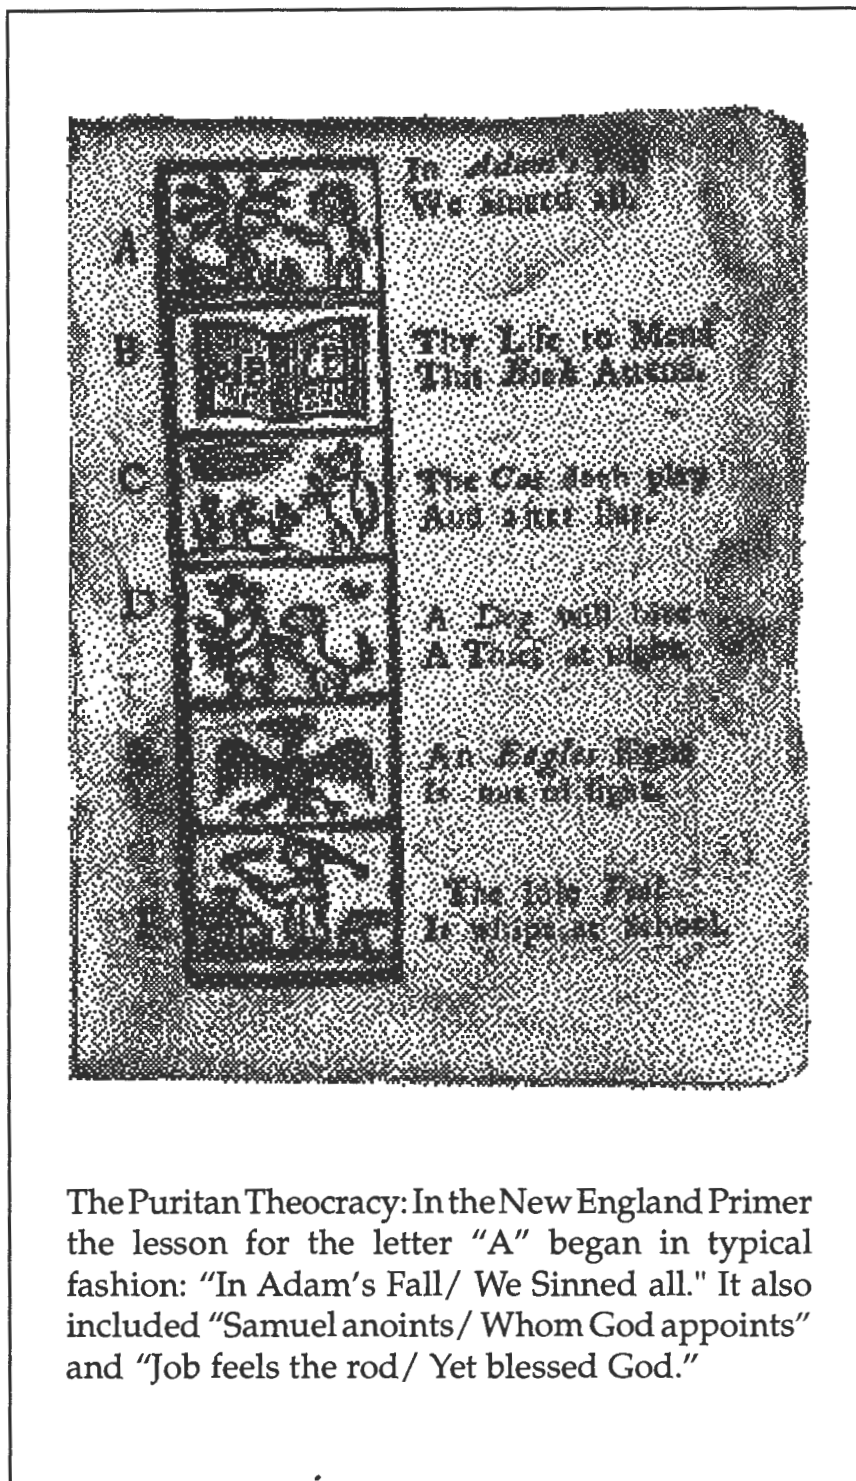 A
In Adam's Fall
We sinned all.
B
Thy Life to Mend
This Book Attend.
C
The Cat doth play
And after slay.
D
A Dog will bite
A Thief at night.
An Eagles flight
Is out of sight.
The Idle Fool
Is whipt at School.
The Puritan Theocracy: In the New England Primer
the lesson for the letter "A" began in typical
fashion: "In Adam's Fall/ We Sinned all." It also
included "Samuel anoints/ Whom God appoints"
and "Job feels the rod/ Yet blessed God."